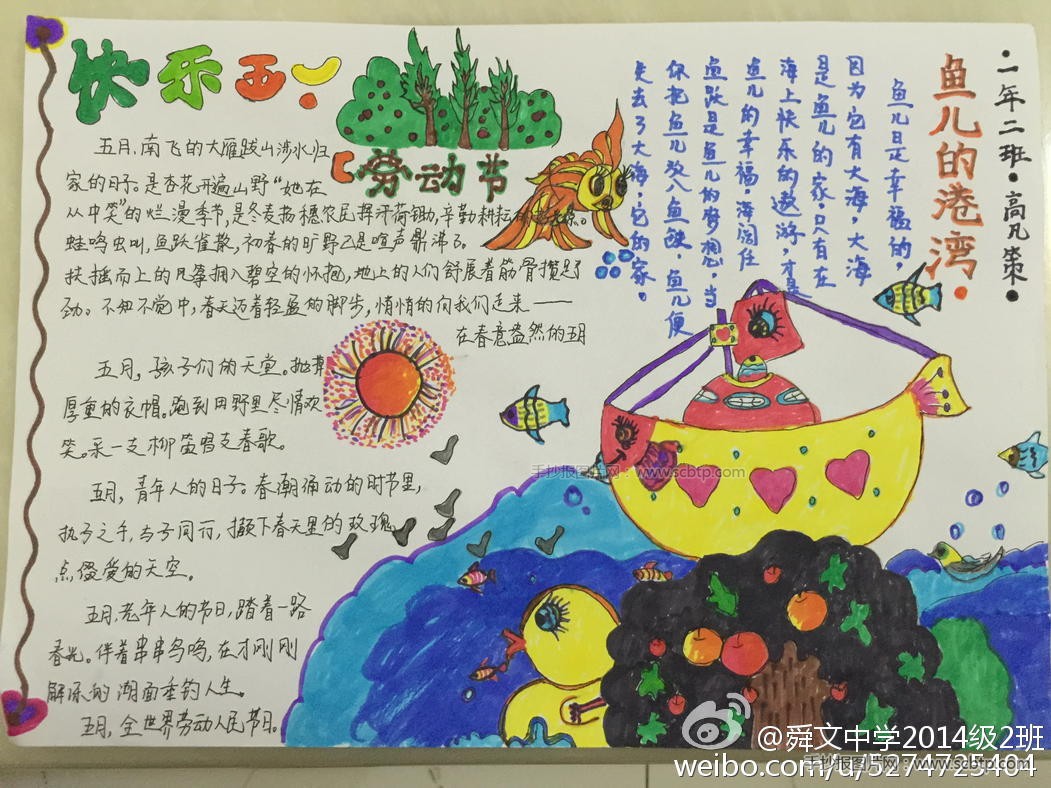 快乐五一!
劳动节
五月,南飞的大雁跋山涉水归
家的日子。是杏花开遍山野“她在
丛中笑”的烂漫季节,是冬麦扬穗农民挥汗荷锄,辛勤耕耘
蛙鸣虫叫,鱼跃雀散,初春的旷野已是喧声鼎沸了。
扶摇而上的风筝拥入碧空的怀抱,地上的人们舒展着筋骨攒足了
劲。不知不觉中,春天迈着轻盈的脚步,悄悄的向我们走来——
在春意盎然的五月
五月,孩子们的天堂。抛弃
厚重的衣帽。跑到田野里尽情欢
笑。采一支柳笛唱支春歌。
五月,青年人的日子。春潮涌动的时节里,
执子之手,与子同行,撷下春天里的玫瑰
点缀爱的天空。
五月,老年人的节日,踏着一路
春光。伴着串串鸟鸣,在才刚刚
解冻的湖面垂钓人生。
五月,全世界劳动人民节日。
·二年二班·高凡策·
鱼儿的港湾·
鱼儿是幸福的,
因为它有大海,大海
是鱼儿的家,只有在
海上快乐的遨游,才是
鱼儿的幸福。海阔任
鱼跃是鱼儿的梦想,当
你把鱼儿放入鱼缸,鱼儿便
失去了大海,它的家。
手抄报图片网:www.scbtp.com
@舜文中学2014级2班
手抄报图片网:www.scbtp.com
weibo.com/u/5274725404